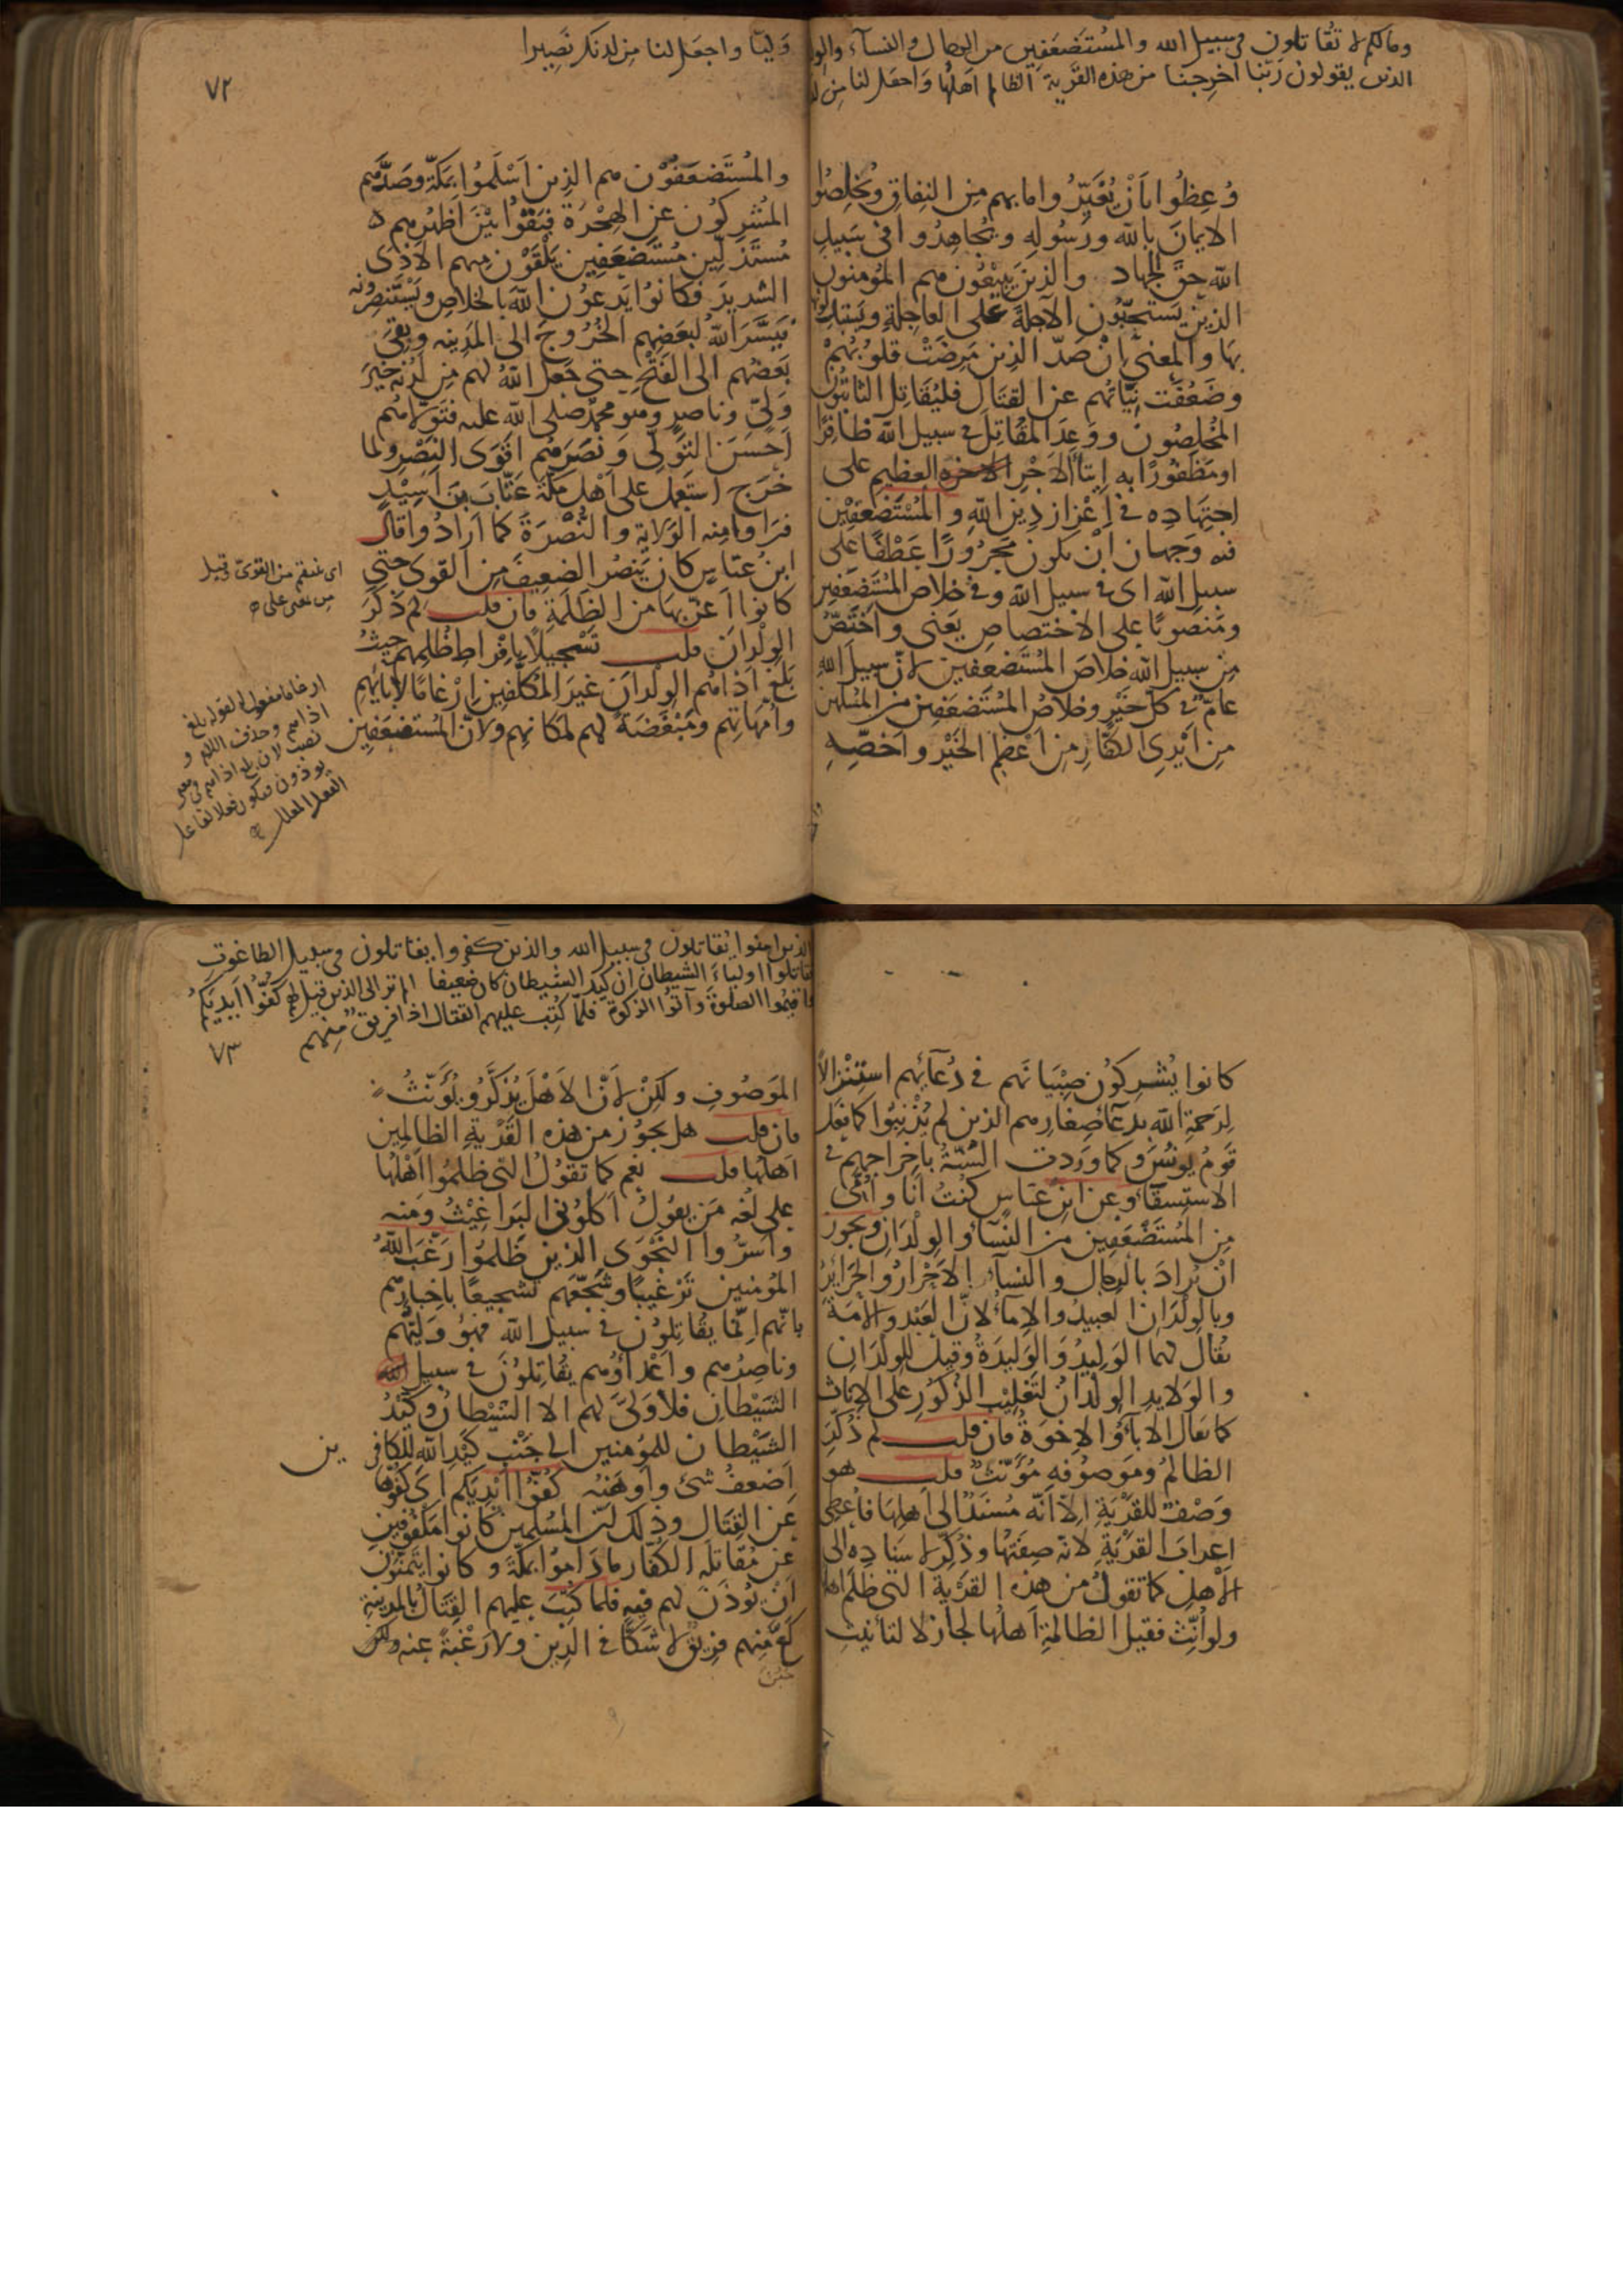 وما لكم لا تقاتلون في سبيل الله والمستضعفين من الرجال والنسآء والولدان
الذين يقولون ربنا اخرجنا من هذه القرية الظالم اهلها واجعل لنا من لدنك
وُعِظُوا بأَنْ يُغَيِّرُوا ما بهم مِن النِفاقِ ويُخْلِصُوا
الايمانَ بالله ورسُولِهِ ويُجاهِدُوا في سَبيلِ
الله حقَّ الجهاد والذينَ يَبيعُون هم المؤمنون
الذين يَستحِبّون الآجلةَ على العاجلةِ ويستبدلونها
بها والمعنى إنْ صَدَّ الذين مَرِضَتْ قلُوبُهُمْ
وضَعُفَت نِيَّاتُهم عن القتال فليُقَاتل الثابتون
المخلِصُونَ ووعدَ المُقاتِلَ في سبيل الله ظافِرًا
او مَظْفُورًا به إيتآءَ الاجْرِ العظيم على
اجتِهَادِه في اعْزازِ دِينِ اللهِ والمُسْتَضْعَفِين
فيه وَجهان أنْ يكون مَجرُورًا عَطْفًا على
سبيل الله اى في سبيل الله وفي خلاص المُسْتَضعَفين
ومَنصُوبًا على الاختصاصِ يَعنى وأخْتَصُّ
مِن سبيل الله خلاصَ المُستضعفين لانّ سبيلَ الله
عامٌّ في كلّ خَيْرٍ وخلاصُ المُستضعَفين من المسلمين
مِن ايْدِى الكفّار مِن اعْظَم الخَيْرِ واخَصِّهِ
وَليّا واجعل لنا مِن لدنك نَصِيرا
٧٢
والمُستَضعَفُوْن هم الذِين اَسْلَموُا بمَكّةَ وصَدّهم
المُشرِكوُن عن الهِجْرَة فبَقوْا بَيْنَ اظْهُرِهم
مُستذَلّين مُستَضعَفين يَلْقَوْن مِنهم الاَذَى
الشديدَ فكانوُا يَدعوُن اللهَ بالخلاصِ ويَسْتَنصِرُونه
فيَسَّرَ اللهُ لبَعضِهم الخُرُوجَ الى المَدِينه وبقِىَ
بَعضُهم الى الفَتْحِ حتى جَعل اللهُ لهم مِن لَدُنه خيرَ
وَلىٍّ وناصرٍ وهو محمّد صلى الله عليه فتَوَلّاهُم
اَحْسَنَ التَوَلّى ونَصَرَهُم اقوَى النَصْرِ ولما
خَرَج استَعمل على اهْل مكة عَتّابَ بنَ اَسِيْدٍ
فرَاوا مِنه الوَلايةَ والنُصْرَةَ كما ارَادُوا قال
ابنُ عبّاسٍ كان يَنصُر الضعيفَ مِن القوى حتى
كانوا اعزّ بها من الظَلمةِ فان قلت لم ذُكرَ
الوِلْدَان قلت تَسْجيلاً بافراطِ ظُلمِهم حيثُ
بَلغَ اذاهُم الوِلْدانَ غيرَ المُكلّفين اِرْغامًا لآبائهم
وامّهاتهم ومَبْغَضَةً لهم لمكانهم ولانّ المُستضعَفين
اى ينتقم من القوىّ وقيل
من بمعنى على
ارغاما مفعول له لقوله بلغ
اذاهم وحذف اللام و
نصب لان بلغ اذاهم في معنى
يوذون فيكون فعلا لفاعل
الفعل المعلل
كانوا يُشرِكوُن صِبْيانَهم في دُعآئهم استِنْزالاً
لِرَحمةِ الله بدُعآءِ صغارهم الذين لم يُذْنِبُوا كما فعل
قومُ يونسَ وكما وَرَدت السُنّةُ باخراجهم في
الاستسقآءِ وعن ابن عباس كنتُ انَا وأُمّى
مِن المُستَضْعَفِين مِن النسآءِ والوِلْدَان ويجوز
انْ يُرادَ بالرجال والنسآء الاَحْرارُ والحَرَائرُ
وبالوِلْدَان العبيدُ والامآءُ لانّ العَبْد والامَةَ
يُقالُ لهما الوَلِيدُ والوَليدَةُ وقيلَ للوِلدَانِ
والوَلايدِ الوِلدَانُ لتَغليْبِ الذكوُرِ على الاناث
كما يقال الآبآءُ والاِخوَةُ فان قلت لم ذُكّرَ
الظالمُ ومَوصُوفه مُؤَنّثٌ قلت هو
وَصْفٌ للقَرْيَةِ الاّ انّه مُسنَدٌ الى اهلِها فأُعْطِى
اعرابَ القَرْيَةِ لانّه صِفَتُها وذُكّرَ لاسنادِه الى
الاَهْلِ كما تقول من هذه القَرْيَةِ التى ظَلَم اهلها
ولو اُنِّثَ فقيل الظالمةِ اَهلُها لجازَ لا لتانيثِ
الذين امنوا يُقاتلون في سبيل الله والذين كفروا يقاتلون في سبيل الطاغوت
فقاتلوا اولياءَ الشيطان ان كيد الشيطان كان ضعيفا الم تر الى الذين قيل لهم كفّوا ايديكم
واقيموا الصلوةَ وآتوُا الزكوة فلمّا كُتِب عليهم القتال اذا فريق مِنهم
٧٣
المَوصُوفِ ولكِنْ لأنّ الاَهْلَ يُذكَّرُ ويُؤَنَّثُ
فان قلت هل يجوز من هذه القَرْيةِ الظالِمِين
اهلُها قلت نعم كما تقُولُ التى ظلمُوا اهْلُها
على لُغَه مَن يقولُ اكلُونى البَراغِيْثُ ومَنه
واسَرُّوا النَجْوَى الذين ظلموُا رغّبَ اللهُ
المُومنين تَرْغيبًا وشجّعَهم تشجيعًا باخبارِهم
بانّهم انّما يقُاتِلوُن في سبيل الله فهو وَليُّهُم
وناصِرُهم واَعْداؤهم يقُاتِلوُن في سبيل الله
الشَيْطان فلا وَلىَّ لهم الا الشَيْطانُ وكَيْدُ
الشَيْطان للمؤمنين الى جَنْب كَيْدِ الله للكافرين
اَضعفُ شئٍ واَوهَنُه كُفّوُا ايْدِيَكم اى كفُّوها
عن القتَال وذلك انّ المُسْلِمين كانوا مَكْفوُفين
عن مُقاتلَه الكُفّار ما دَامُوا بمكّةَ وكانوا يتمنّون
اَن يؤذَنَ لهم فيه فلما كتِبَ عليهم القِتَالُ بالمدينةِ
كعَّ مِنهم فريْقٌ لا شكًّا في الدِين ولا رَغْبةً عنه ولكن